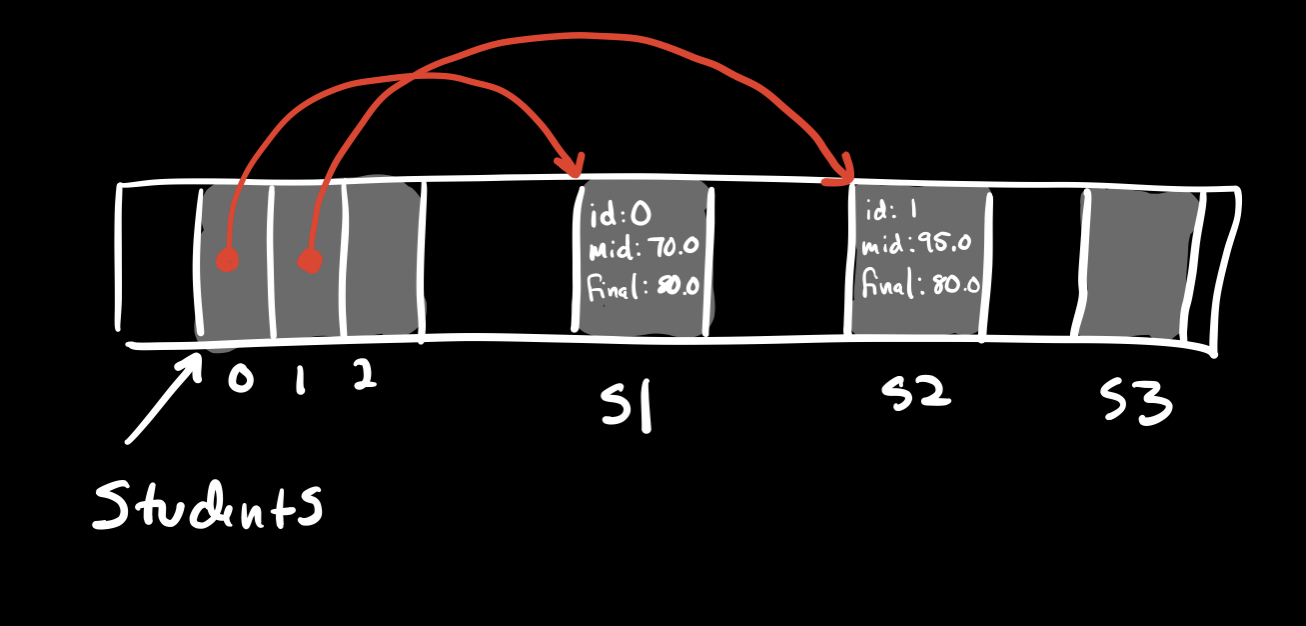 id:0
mid:70.0
final:80.0
id:1
mid:95.0
final:80.0
0 1 2
S1
S2
S3
Students